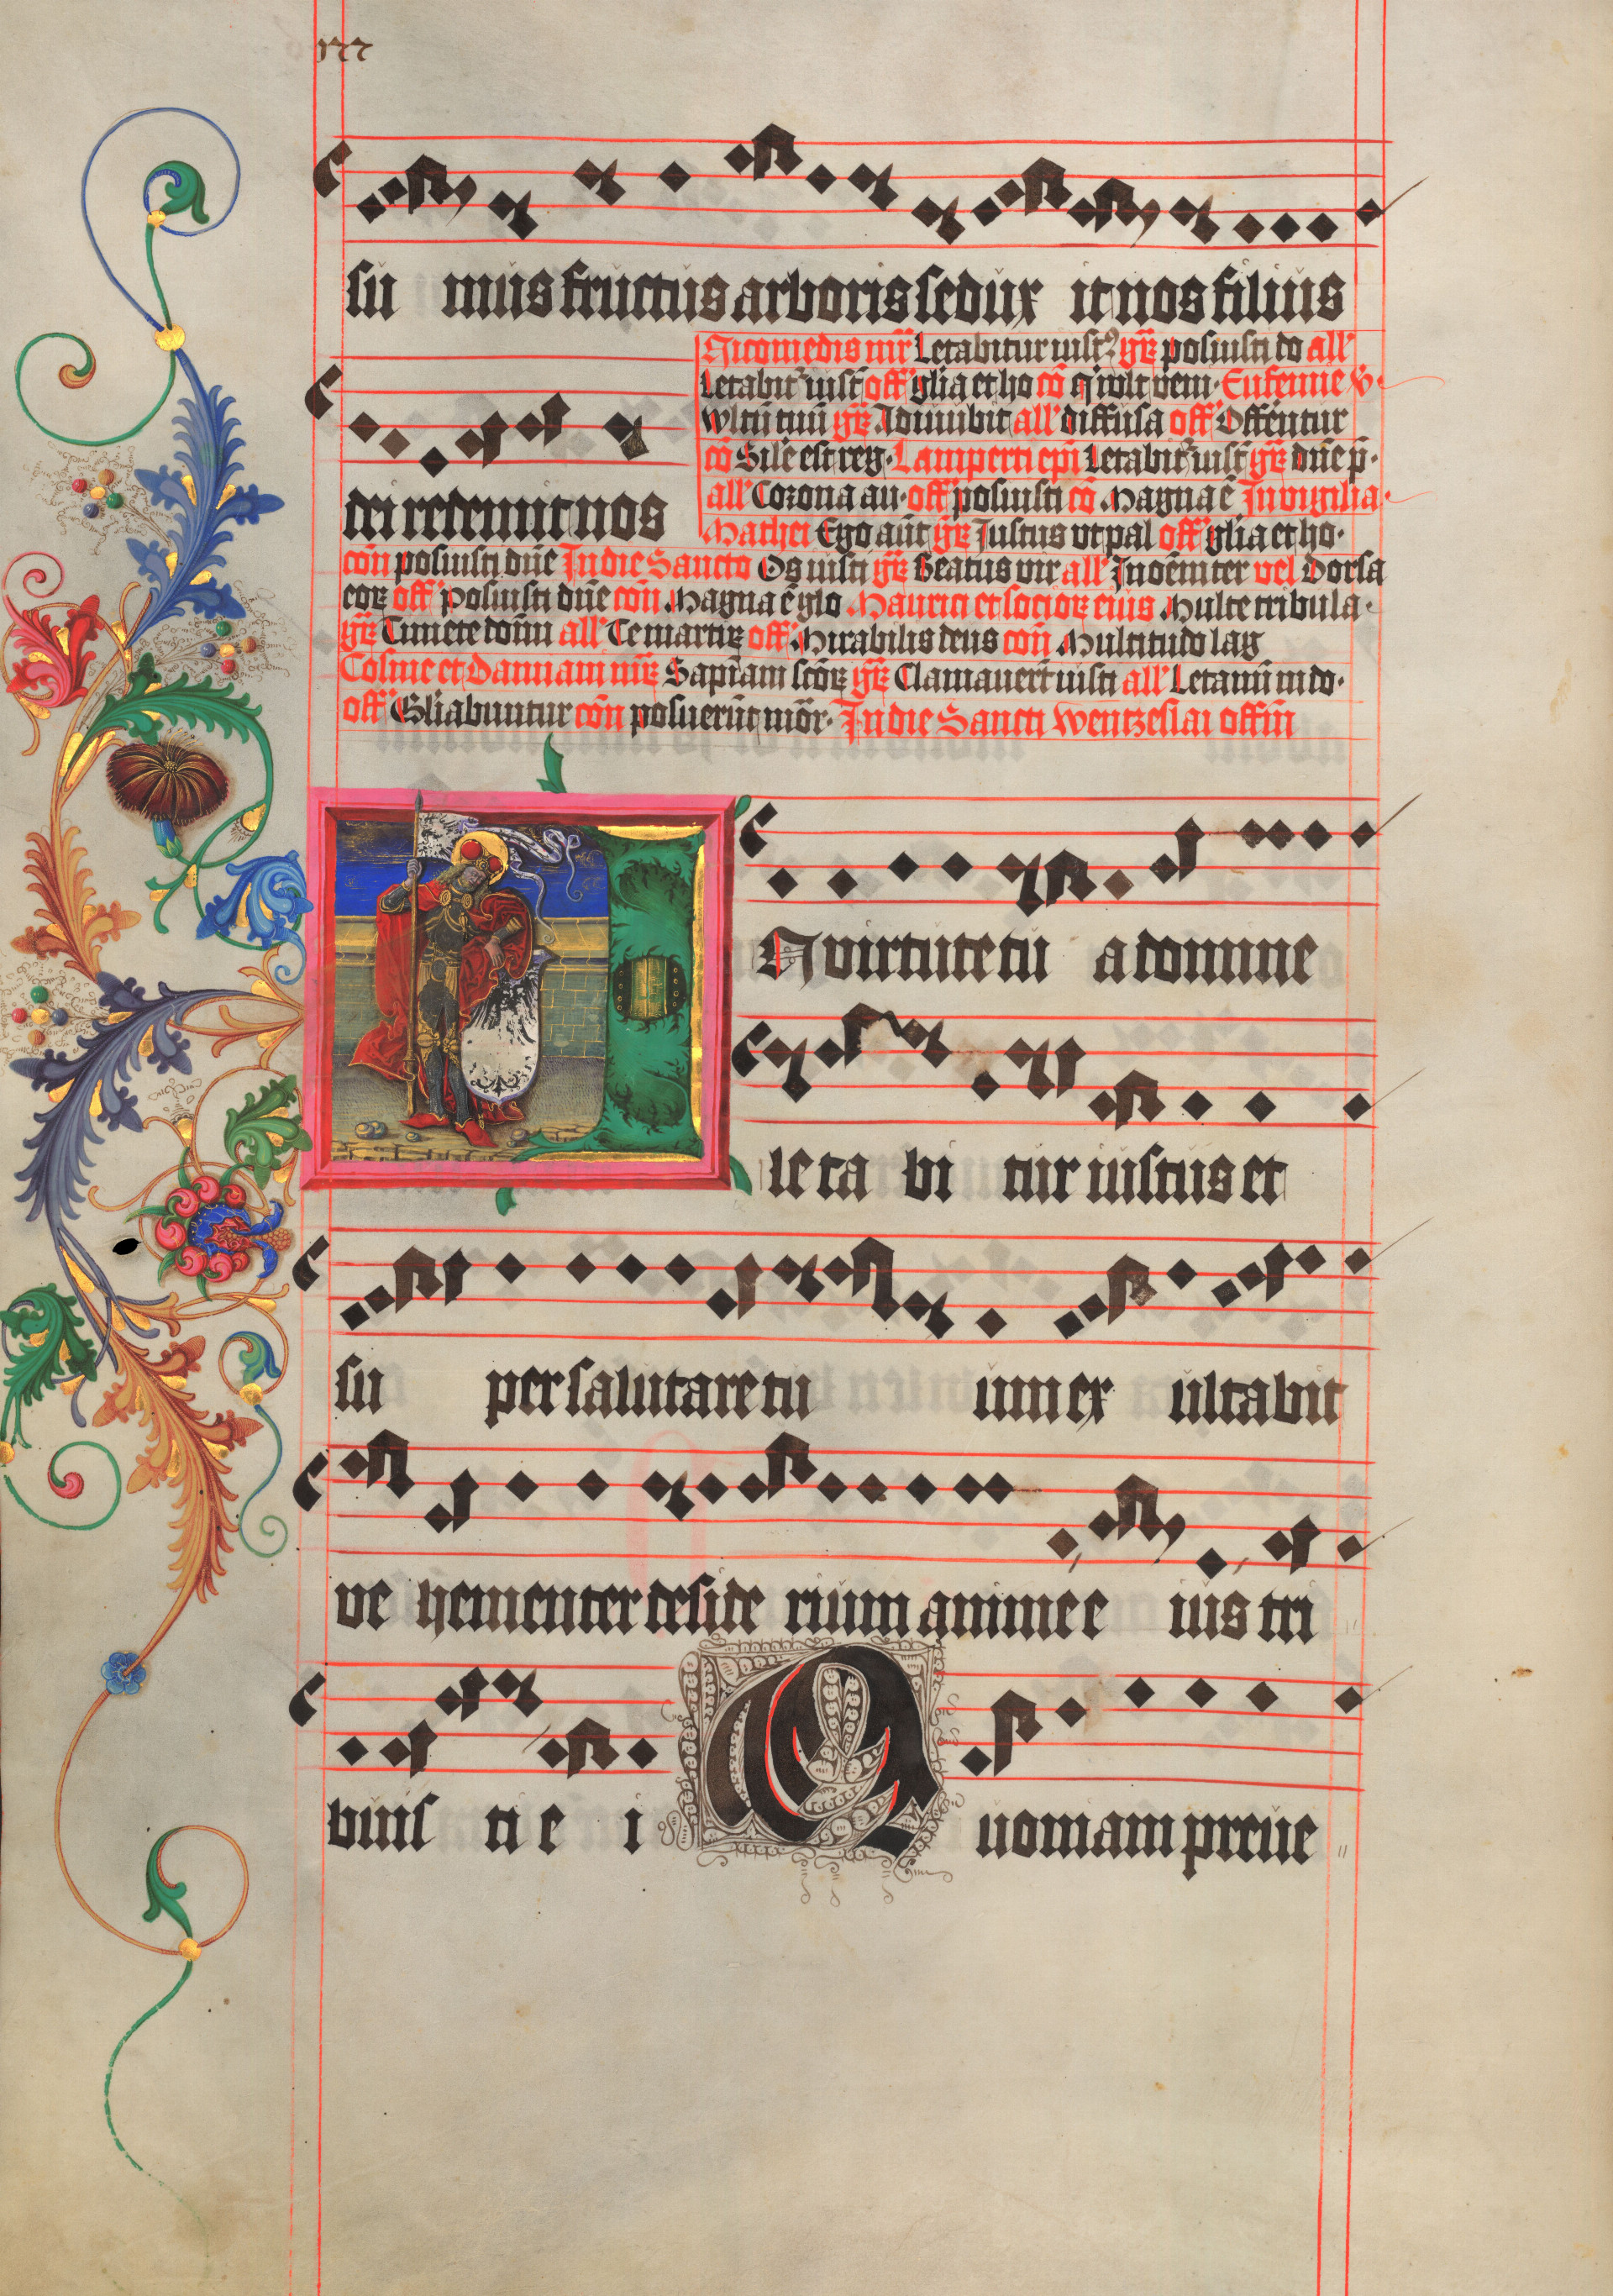 su mus fructus arboris sedux it nos filius
Nicomedis mr̄ Letabitur iust⁹ gr̄ posuisti do all'
Letabit² iust̄ off' gl̄ia et ho cō q̄ vult veni· Eufemie v̄·
wltū tuū gr̄ Adiuuabit all' diffusa off' Offerētur
cō Sīle est reg· Lamperti ep̄i Letabit² iust̄ gr̄ dn̄e p̄·
dei redemit nos
all' Corona au· off' posuisti cō Magna ē In vigilia·
Mathei Ego aūt gr̄ Justus vt pal off' gl̄ia et ho·
cōn posuisti dn̄e In die Sancto Os iusti gr̄ Beatus vir all' In oēm ter vel Dorsa
eoꝝ off' posuisti dn̄e cōn Magna ē glo Mauricii et socioꝝ eius Multe tribula·
gr̄ Timete domi all' Te martiꝝ off' Mirabilis deus cōn Multitudo lag
Cosme et Damiani mr̄ꝝ Sapiam sc̄oꝝ gr̄ Clamauer̄t iusti all' Letamī in do·
off' Gl̄iabuntur cōn posuerūt mōr· In die Sancti Wentzeslai offm̄
N virtute tu a domine
leta bi tur iustus et
su per salutare tu um ex ultabit
ve hementer deside rium anime e ius tri
buis ti e i Q uoniam preue